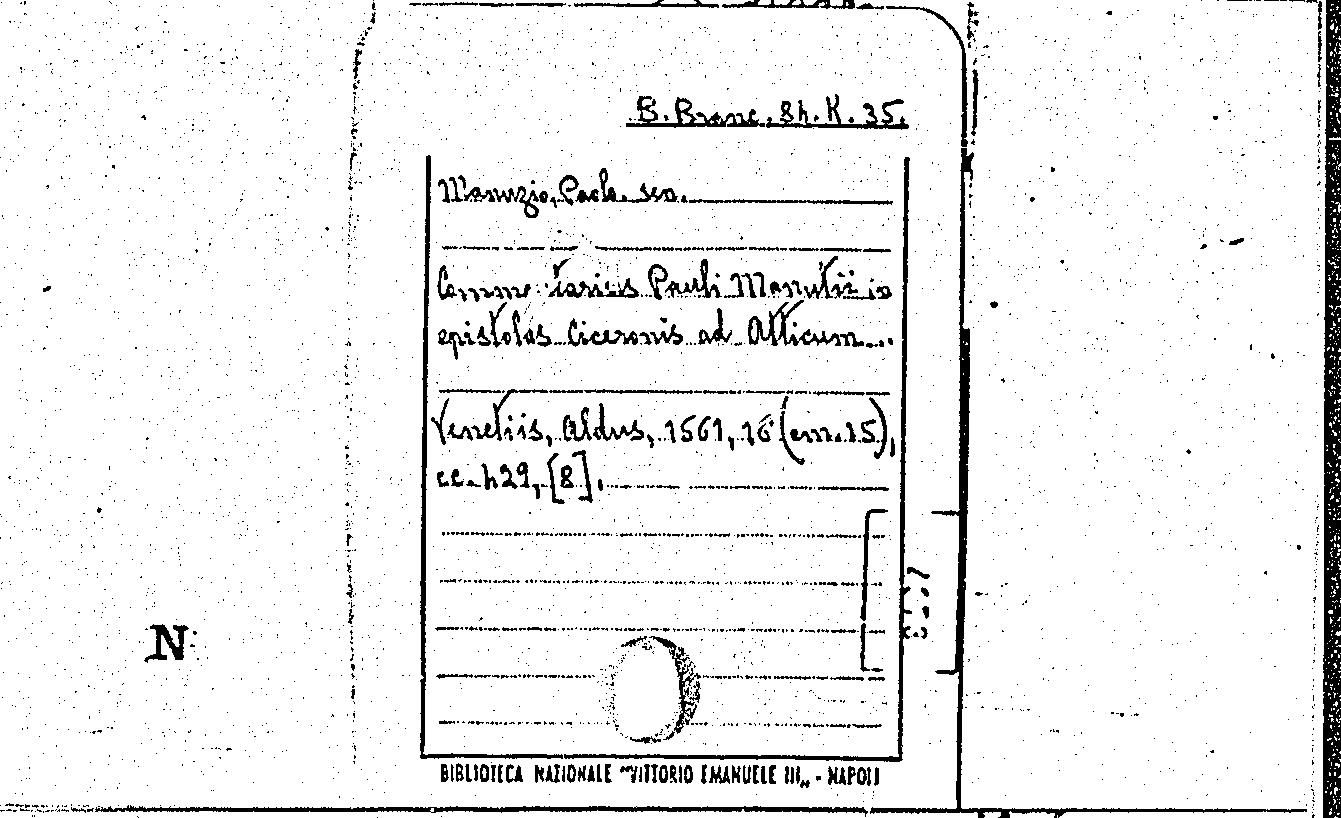 B. Branc. 8h. K. 35.
Manuzio, Paolo. sen.
Commentarius Pauli Manutii in
epistolas Ciceronis ad Atticum...
Venetiis, Aldus, 1561, 16 (cm. 15),
cc. h29, [8].
N
BIBLIOTECA NAZIONALE "VITTORIO EMANUELE III„ - NAPOLI